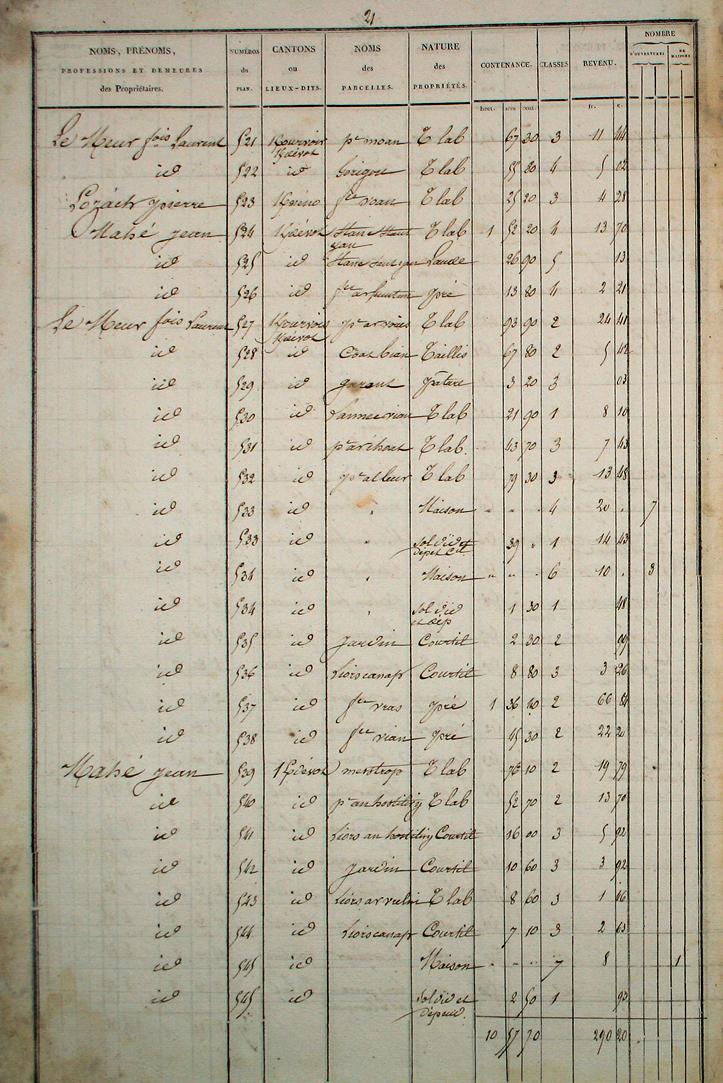 21
NOMS, PRÉNOMS, PROFESSIONS ET DEMEURES des Propriétaires. NUMÉROS du PLAN. CANTONS ou LIEUX-DITS. NOMS des PARCELLES. NATURE des PROPRIÉTÉS. CONTENANCE. CLASSES REVENU. NOMBRE D'OUVERTURES DE MAISONS
hect. ares cent. fr. c.
Le Meur fois Laurent 521 Kourvois Kdévot pc moan T lab 67 30 3 11 44
id 522 id T lab 55 80 4 5 02
Lozach pierre 523 T lab 25 20 3 4 28
Mahé jean 524 Kdévot T lab 1 52 20 4 13 70
id 525 id Lande 26 90 5 13
id 526 pré 13 80 4 2 21
Le Meur fois Laurent 527 Kourvois Kdévot T lab 93 90 2 24 41
id 528 id Coat bian Taillis 67 80 2 5 42
id 529 id garant pature 3 20 3 03
id 530 id T lab 21 90 1 8 10
id 531 id T lab. 43 70 3 7 43
id 532 id T lab 79 30 3 13 48
id 533 id " Maison " " " 4 20 " 7
id 533 id " Sol 39 " 1 14 43
id 534 id " Maison " " " 6 10 " 3
id 534 id " Sol 1 30 1 48
id 535 id jardin Courtil 2 30 2
id 536 id liorscanap Courtil 8 80 3 3 26
id 537 id fcu vras pré 1 36 2 66
id 538 id fcu vian pré 45 30 2 22 20
Mahé jean 539 Kdévot messtrop T lab 76 10 2 19 79
id 540 id T lab 52 70 2 13 70
id 541 id Liors an hostiliry Courtil 16 00 3 5 92
id 542 id jardin Courtil 10 60 3 3 92
id 543 id T lab 8 60 3 1 46
id 544 id liorscanap Courtil 7 10 3 2 63
id 545 id Maison " " " 7 8 1
id 545 id Sol 2 50 1 93
10 57 70 290 20